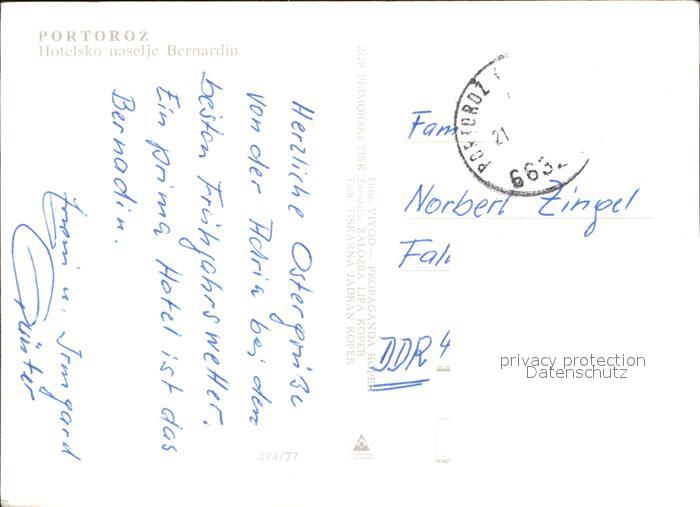 PORTOROŽ
Hotelsko naselje Bernardin
Herzliche Ostergrüße
von der Adria bei den
besten Frühjahrswetter.
Ein prima Hotel ist das
Bernadin.
u. Irmgard
Günter
ZGP PRIMORSKI TISK
Foto: VIVOD — PROPAGANDA KOPER
Založila: ZALOŽBA LIPA KOPER
Tisk: TISKARNA JADRAN KOPER
474/77
PORTOROŽ
21
6632
Fam
Norbert Zingel
Fal
DDR 4
privacy protection
Datenschutz